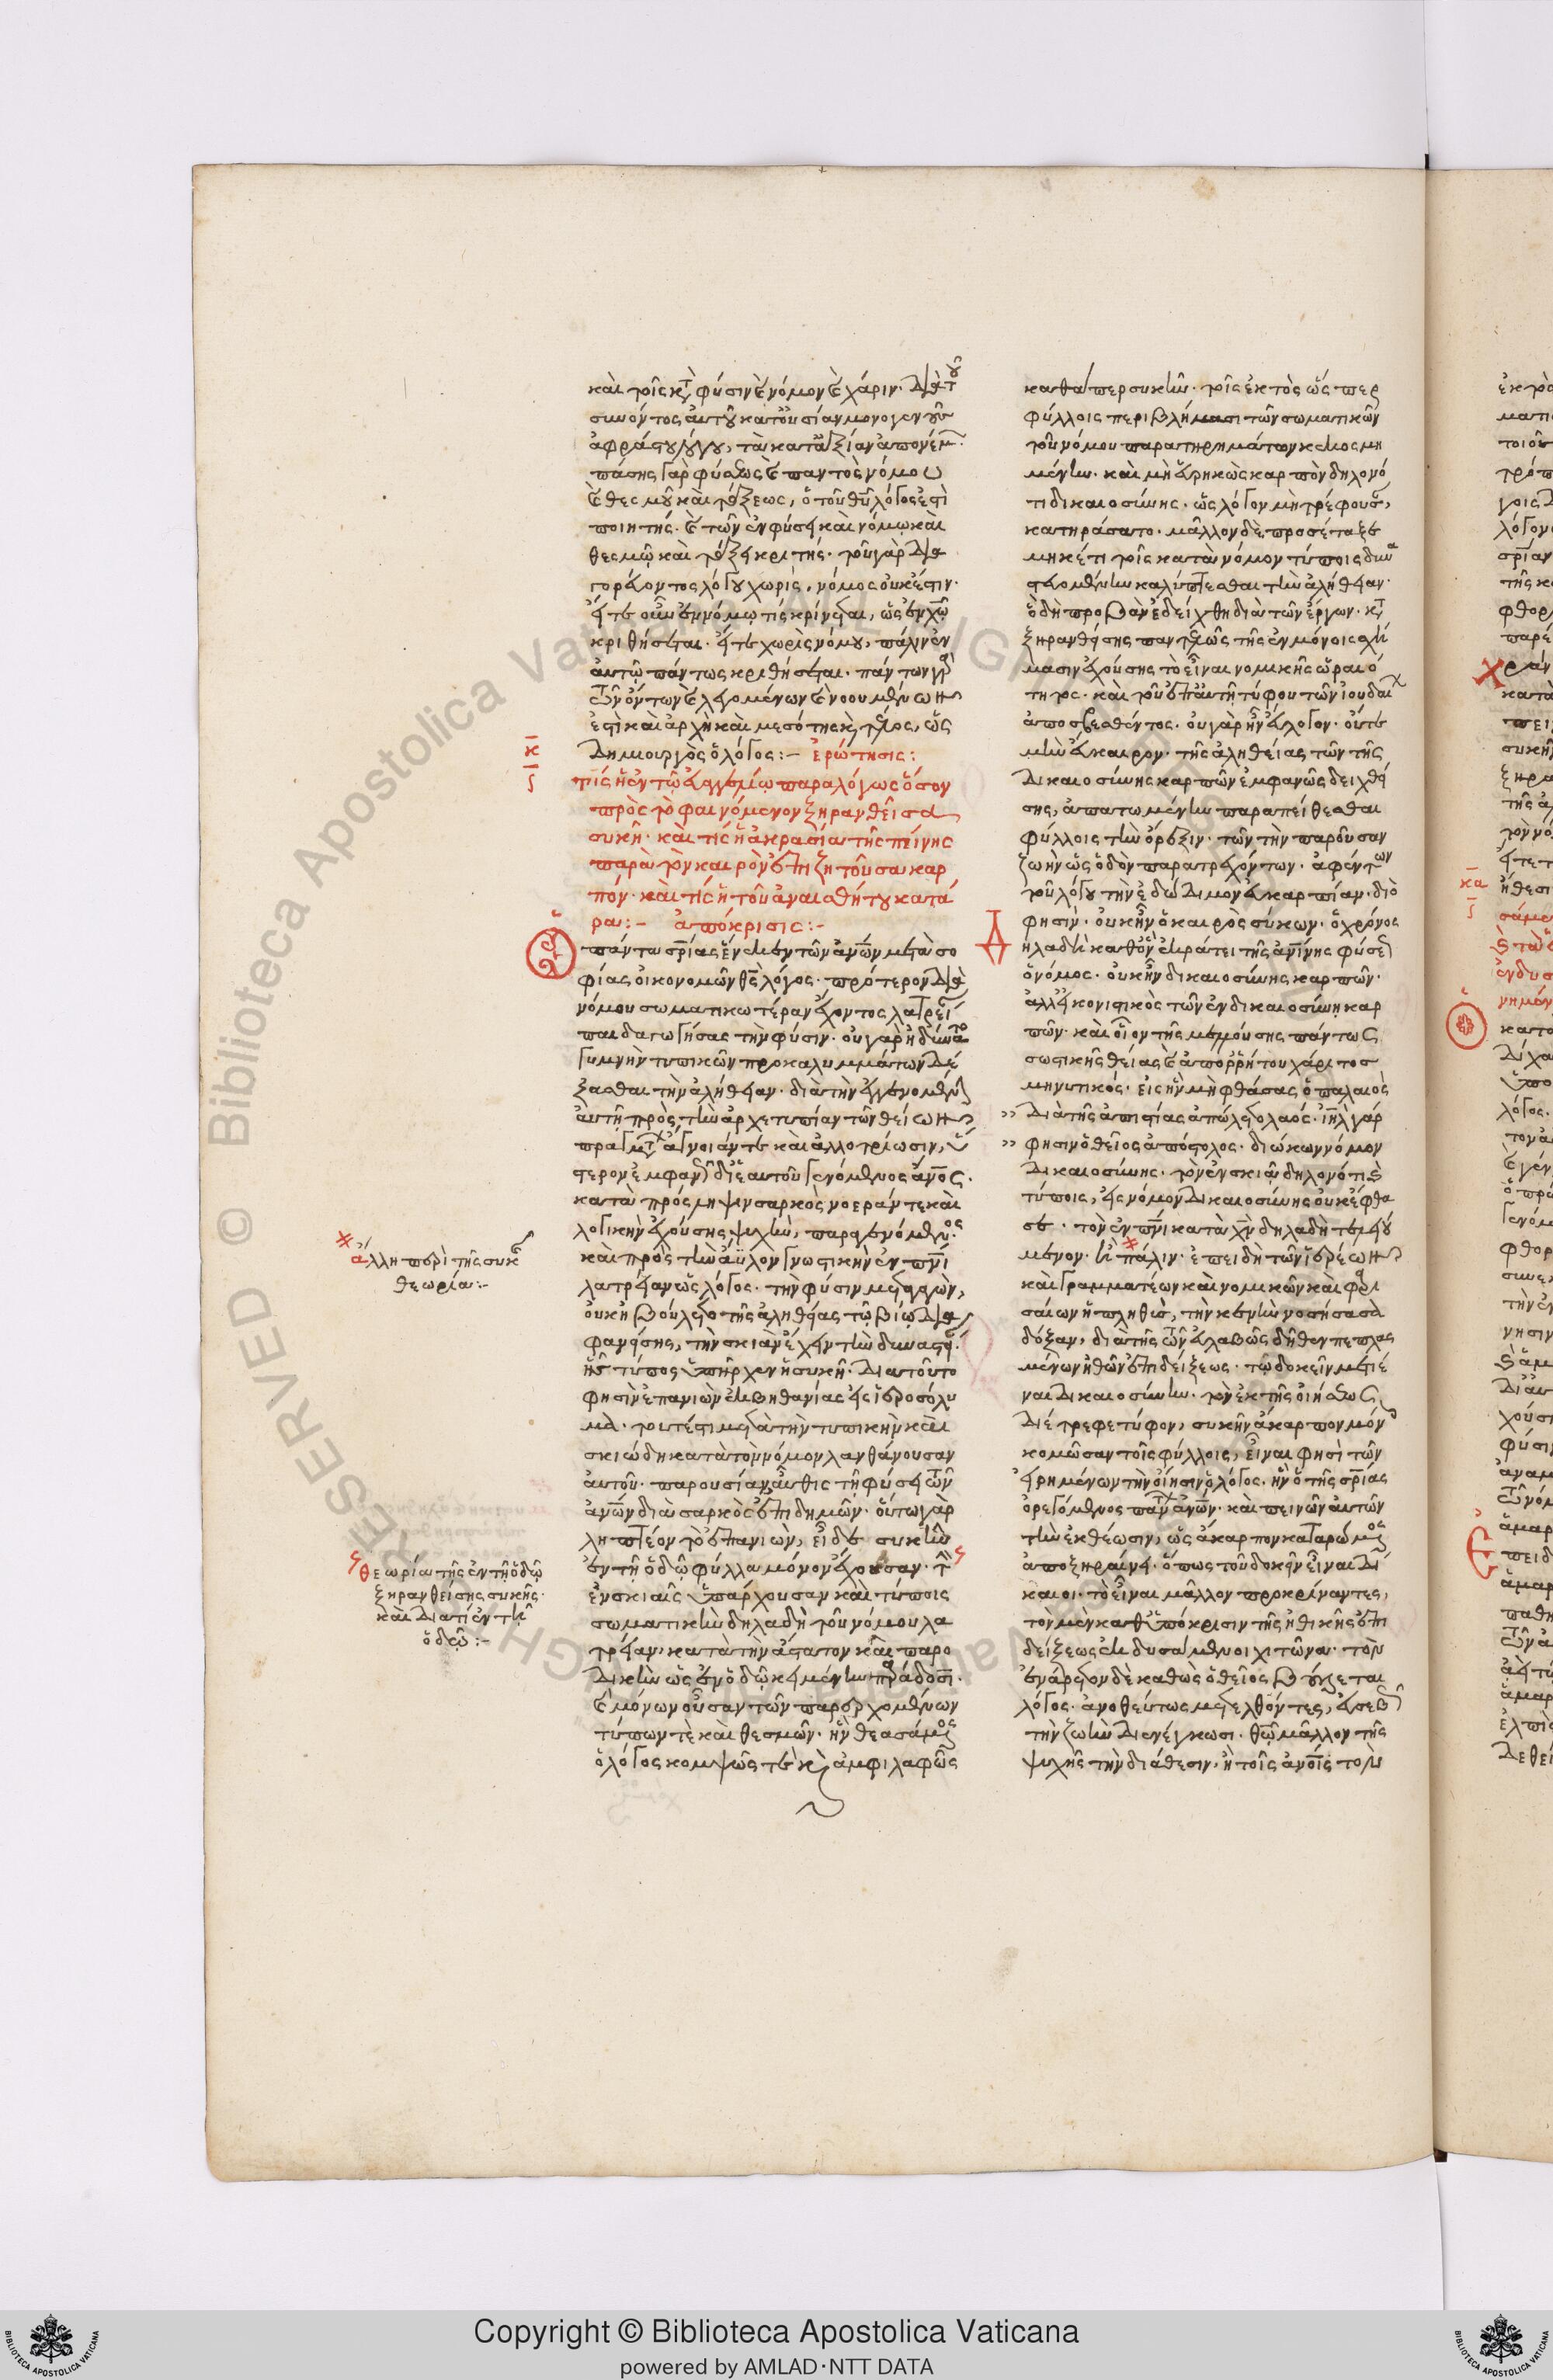 καὶ τοῖς κτ̀ φύσιν καὶ νόμον καὶ χάριν. διὰ τοῦ
συνόντος αὐτοῦ κατ' οὐσίαν μονογενοῦς
ἀφράστου λόγου, τὰ κατ' ἀξίαν ἀπονέμ
πάσης γὰρ φύσεως καὶ παντὸς νόμου
καὶ θεσμοῦ καὶ τάξεως, ὁ τοῦ θυ λόγος ἐστὶ
ποιητής. καὶ τῶν ἐν φύσει καὶ νόμω καὶ
θεσμῶ καὶ τάξει κριτής. τοῦ γὰρ δια
γορεύοντος λόγου χωρὶς, νόμος οὐκ ἔστιν.
εἴτε οὖν ἐν νόμω τίς κρίνεται, ὡς ἐν χω
κριθήσεται. εἴτε χωρὶς νόμου, πάλιν ἐν
αὐτῶ πάντως κριθήσεται. πάντων γὰρ
τῶν ὄντων καὶ λεγομένων καὶ νοουμένων
ἐστὶ καὶ ἀρχὴ καὶ μεσότης καὶ τέλος, ὡς
δημιουργὸς ὁ λόγος :- ἐρώτησις :
κ
τίς ἡ ἐν τῶ εὐαγγελίω παραλόγως ὅσον
πρὸς τὸ φαινόμενον ξηρανθεῖσα
συκῆ. καὶ τίς ἡ ἀκρασία τῆς πείνης
παρὰ τὸν καιρὸν ἐπιζητοῦσα καρ
πόν. καὶ τίς ἡ τοῦ ἀναισθήτου κατά
ρα :- ἀπόκρισις :-
πάντα σρίας ἕνεκεν τῶν ἀνων μετὰ σο
φίας οἰκονομῶν θς λόγος. πρότερον διὰ
νόμου σωματικωτέραν ἔχοντος λατρεί
παιδαγωγήσας τὴν φύσιν. οὐ γὰρ ἠδύνατο
γυμνὴν τυπικῶν προκαλυμμάτων δέ
ξασθαι τὴν ἀλήθειαν. διὰ τὴν ἐγγενομένην
αὐτῆ πρὸς τὴν ἀρχετυπίαν τῶν θείων
πραγμάτων ἄγνοιάν τε καὶ ἀλλοτρίωσιν, ὕ
στερον ἐμφανῶς δι' ἑαυτοῦ γενόμενος ἄνος.
κατὰ πρόσληψιν σαρκὸς νοεράν τε καὶ
λογικὴν ἐχούσης ψυχὴν, παραγενόμενος
καὶ πρὸς τὴν ἄϋλον γνωστικὴν ἐν πνι
λατρείαν ὡς λόγος. τὴν φύσιν μεταγαγὼν,
οὐκ ἠβούλετο τῆς ἀληθείας τῶ βίω δια
φανείσης, τὴν σκιὰν ἔχειν τὴν δυναστεί.
ἧς τύπος ὑπῆρχεν ἡ συκῆ. διατοῦτο
φησὶν ἐπανιὼν ἐκ βηθανίας εἰς ἱεροσόλυ
μα. τουτέστι μετὰ τὴν τυπικὴν καὶ
σκιώδη κατὰ τὸν νόμον λανθάνουσαν
αὐτοῦ. παρουσίαν, αὖθις τῆ φύσει τῶν
ἀνων διὰ σαρκὸς ἐπιδημῶν. οὕτω γὰρ
ληπτέον τὸ ἐπανιὼν, εἶδε συκὴν
ἐν τῆ ὁδῶ φύλλα μόνον ἔχουσαν. τὴν
ἐν σκιαῖς ὑπάρχουσαν καὶ τύποις
σωματικὴν δηλαδὴ τοῦ νόμου λα
τρείαν. κατὰ τὴν ἄστατον καὶ παρο
δικὴν ὡς ἐν ὁδῶ κειμένην παράδοσιν.
καὶ μόνων οὖσαν τῶν παρερχομένων
τύπων τὲ καὶ θεσμῶν. ἣν θεασάμενος
ὁ λόγος κομψῶς τε καὶ ἀμφιλαφῶς
ἄλλη περὶ τῆς συκῆς
θεωρία :-
θεωρία τῆς ἐν τῆ ὁδῶ
ξηρανθείσης συκῆς.
καὶ διατί ἐν τῆ
ὁδῶ :-
καθάπερ συκῆν. τοῖς ἐκτὸς ὥσπερ
φύλλοις περιβλήμασι τῶν σωματικῶν
τοῦ νόμου παρατηρημάτων κεκοσμη
μένην. καὶ μὴ εὑρηκὼς καρπὸν δηλονό
τι δικαιοσύνης. ὡς λόγον μὴ τρέφουσαν,
κατηράσατο. μᾶλλον δὲ προσέταξε
μηκέτι τοῖς κατὰ νόμον τύποις δυνα
στευομένην καλύπτεσθαι τὴν ἀλήθειαν.
ὃ δὴ προβὰν ἐδείχθη διὰ τῶν ἔργων. κ
ξηρανθείσης παντελῶς τῆς ἐν μόνοις σχή
μασιν ἐχούσης τὸ εἶναι νομικῆς ὡραιό
τητος. καὶ τοῦ ἐπ' αὐτῆ τύφου τῶν ἰουδαί
ἀποσβεσθέντος. οὐ γὰρ ἦν εὔλογον. οὔτε
μὴν εὔκαιρον. τῆς ἀληθείας τῶν τῆς
δικαιοσύνης καρπῶν ἐμφανῶς δειχθεί
σης, ἀπατωμένην παραπείθεσθαι
φύλλοις τὴν ὄρεξιν. τῶν τὴν παροῦσαν
ζωὴν ὡς ὁδὸν παρατρεχόντων. ἀφέντων
τοῦ λόγου τὴν ἐδώδιμον εὐκαρπίαν. διὸ
φησίν. οὐκ ἦν ὁ καιρὸς σύκων. ὁ χρόνος
δηλαδὴ καθ' ὃν ἐκράτει τῆς ἀνίνης φύσεως
ὁ νόμος. οὐκ ἦν δικαιοσύνης καρπῶν.
ἀλλ' εἰκονιστικὸς τῶν ἐν δικαιοσύνη καρ
πῶν. καὶ οἷον τῆς μελλούσης πάντως
σωστικῆς θείας καὶ ἀπορρήτου χάριτος
μηνυτικός. εἰς ἣν μὴ φθάσας ὁ παλαιὸς
διὰ τῆς ἀπιστίας ἀπώλετο λαός. ιηλ γάρ
φησιν ὁ θεῖος ἀπόστολος. διώκων νόμον
δικαιοσύνης. τὸν ἐν σκιᾶ δηλονότι καὶ
τύποις, εἰς νόμον δικαιοσύνης οὐκ ἔφθα
σε. τὸν ἐν πνι κατὰ χν δηλαδὴ τελού
μενον. ἢ πάλιν. ἐπειδὴ τῶν ἱερέων
καὶ γραμματέων καὶ νομικῶν καὶ φαρι
σαίων ἡ πληθὺς, τὴν κενὴν νοσήσασα
δόξαν, διὰ τῆς τῶν εὐλαβῶς δῆθεν πεπλασ
μένων ἠθῶν ἐπιδείξεως. τῶ δοκεῖν μετιέ
ναι δικαιοσύνην. τὸν ἐκ τῆς οἰήσεως
διέτρεφε τύφον, συκῆν ἄκαρπον μόνον
κομῶσαν τοῖς φύλλοις, εἶναι φησὶ τῶν
εἰρημένων τὴν οἴησιν ὁ λόγος. ἣν ὁ τῆς σρίας
ὀρεγόμενος πάντων ἀνων. καὶ πεινῶν αὐτῶν
τὴν ἐκθέωσιν, ὡς ἄκαρπον καταρώμενος
ἀποξηραίνει. ὅπως τοῦ δοκεῖν εἶναι δί
καιοι. τὸ εἶναι μᾶλλον προκρίναντες,
τὸν μὲν καθ' ὑπόκρισιν τῆς ἠθικῆς ἐπι
δείξεως ἐκδυσάμενοι χιτῶνα. τὸν
ἐνάρετον δὲ καθὼς ὁ θεῖος βούλεται
λόγος. ἀνοθεύτως μετελθόντες, εὐσεβῶς
τὴν ζωὴν διενέγκωσι. θῶ μᾶλλον τῆς
ψυχῆς τὴν διάθεσιν, ἢ τοῖς ἀνοις τὸν
Copyright © Biblioteca Apostolica Vaticana
powered by AMLAD·NTT DATA